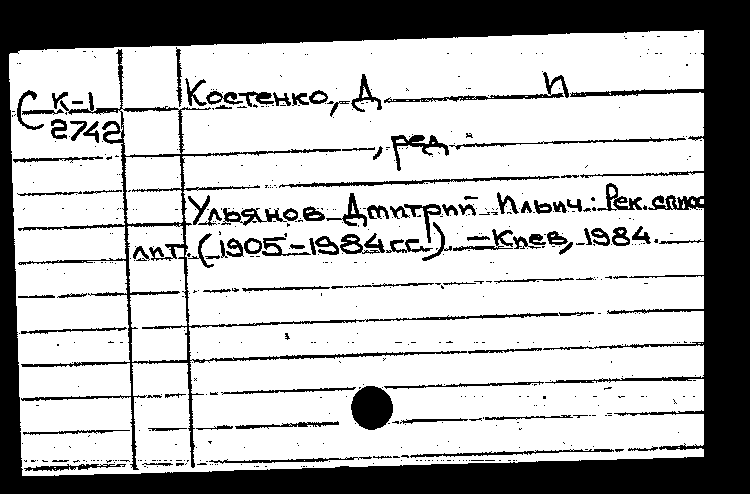 С К-1 Костенко, Д И
2742
, ред.
Ульянов Дмитрий Ильич: Рек. списо
лит. (1905-1984 гг.). – Киев, 1984.